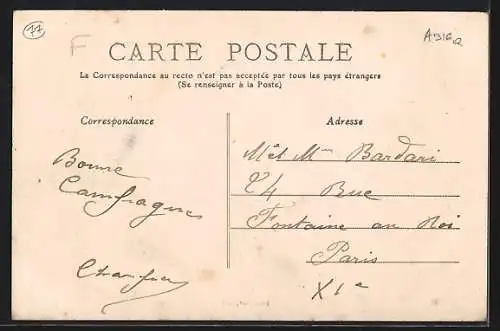 77
F
CARTE POSTALE
La Correspondance au recto n'est pas acceptée par tous les pays étrangers
(Se renseigner à la Poste)
Correspondance
Adresse
Bonne
Campagne
M et Mme Bardari
24 Rue
Fontaine au Roi
Paris
XIe